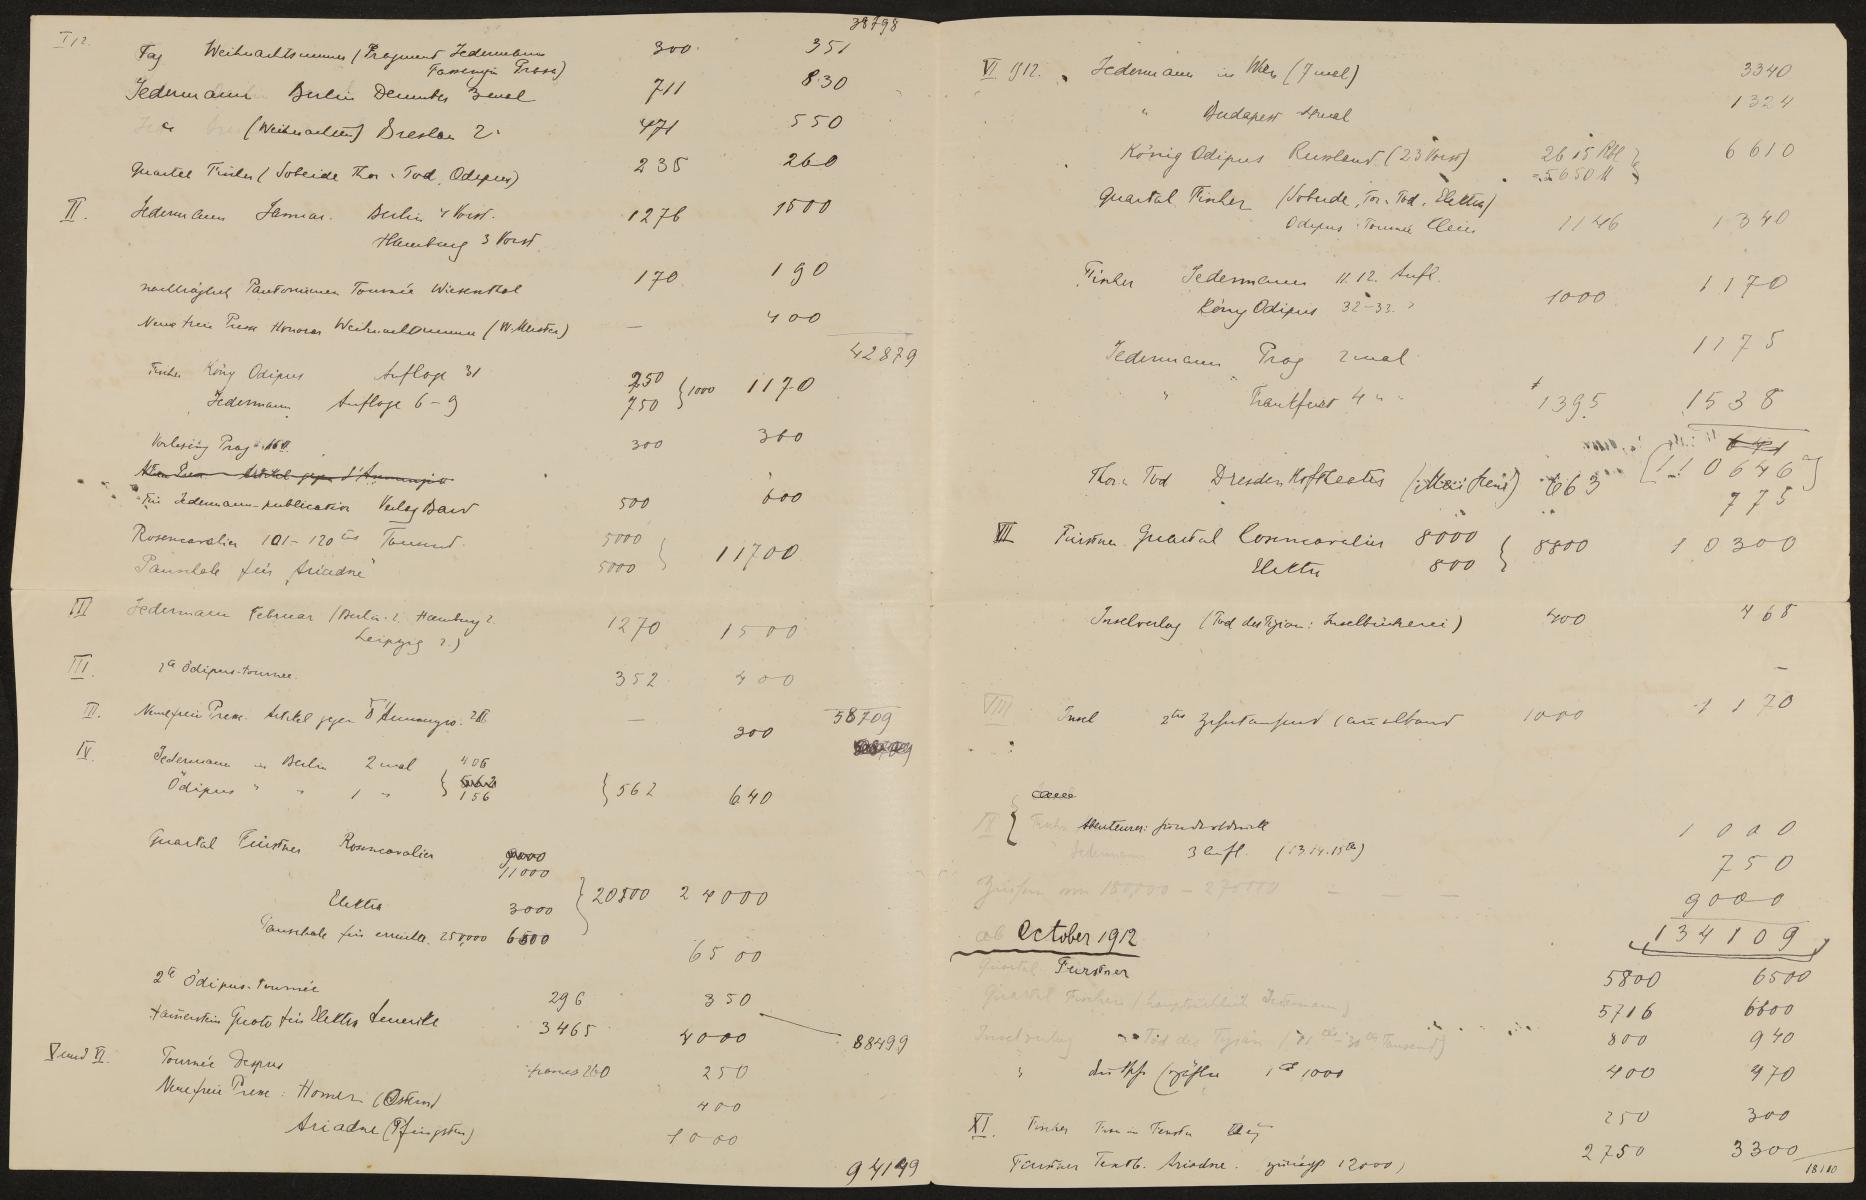 38798
I 12. Tag Weihnachtsnummer (Fragment Jedermann 300. 351
Prosa)
Jedermann Berlin Dezember 3mal 711 830
(Weihnachten) Breslau 2 471 550
Quartal Fischer (Sobeide Thor u. Tod, Ödipus) 235 260
II. Jedermann Januar. Berlin 4 Vorst. 1276 1500
Hamburg 3 Vorst
nachträglich Pantomimen Tournée Wiesenthal 170 190
Neue freie Presse Honorar Weihnachtsnummer (W. Meister) — 400
42879
Fischer König Ödipus Auflage 31 250
Jedermann Auflage 6–9 750 } 1000 1170
Vorlesung Prag 300 360
Neue Presse Artikel gegen d'Annunzio
Jedermann-publication Verlag Bard 500 600
Rosencavalier 101–120tes Tausend. 5000
Pauschale für „Ariadne" 5000 } 11700
III Jedermann Februar (Berlin 2. Hamburg 2. 1270 1500
Leipzig 2.)
III. 1te Ödipus-tournee. 352 400
III. Neue freie Presse. Artikel gegen d'Annunzio. — 300 58709
IV. Jedermann in Berlin 2 mal 406
Ödipus " " 1 " 156 } 562 640
Quartal Fürstner Rosencavalier 11000
Elektra 3000 } 20500 24000
Pauschale für 250,000 6500
6500
2te Ödipus-tournée 296 350
Hammerstein Quote für Elektra Amerika 3465 4000 88499
V und VI. Tournée Despres francs 260 250
Neue freie Presse: Homer (Ostern) 400
Ariadne (Pfingsten) 1000
94149
VI 1912. Jedermann in Wien (7 mal) 3340
" Budapest 4mal 1324
König Ödipus Russland (23 Vorst) 2615 Rbl 6610
= 5650 M
Quartal Fischer (Sobeide, Tor u. Tod, Elektra)
Ödipus Tournée 1146 1340
Fischer Jedermann 11. 12. Aufl.
König Ödipus 32–33. " 1000 1170
Jedermann Prag 2 mal 1175
" Frankfurt 4 " " 1395 1538
[110646]
Thor u. Tod Dresden Hoftheater 663 775
VII Fürstner Quartal Rosencavalier 8000
Elektra 800 } 8800 10300
Inselverlag (Tod des Tizian: Inselbücherei) 400 468
—
VIII Insel 2tes Zehntausend 1000 1170
IX Fischer Abenteurer: 1000
" Jedermann 3 Aufl. (13. 14. 15te) 750
Zinsen von 150,000 – 270000 — — 9000
134109
ab October 1912
Quartal Fürstner 5800 6500
Quartal Fischer (hauptsächlich Jedermann) 5716 6600
Inselverlag Tod des Tizian (21te–30tes Tausend) 800 940
" 1te 1000 400 470
XI. Fischer Tor im Fenster 250 300
Fürstner Textb. Ariadne. 12000) 2750 3300
18110